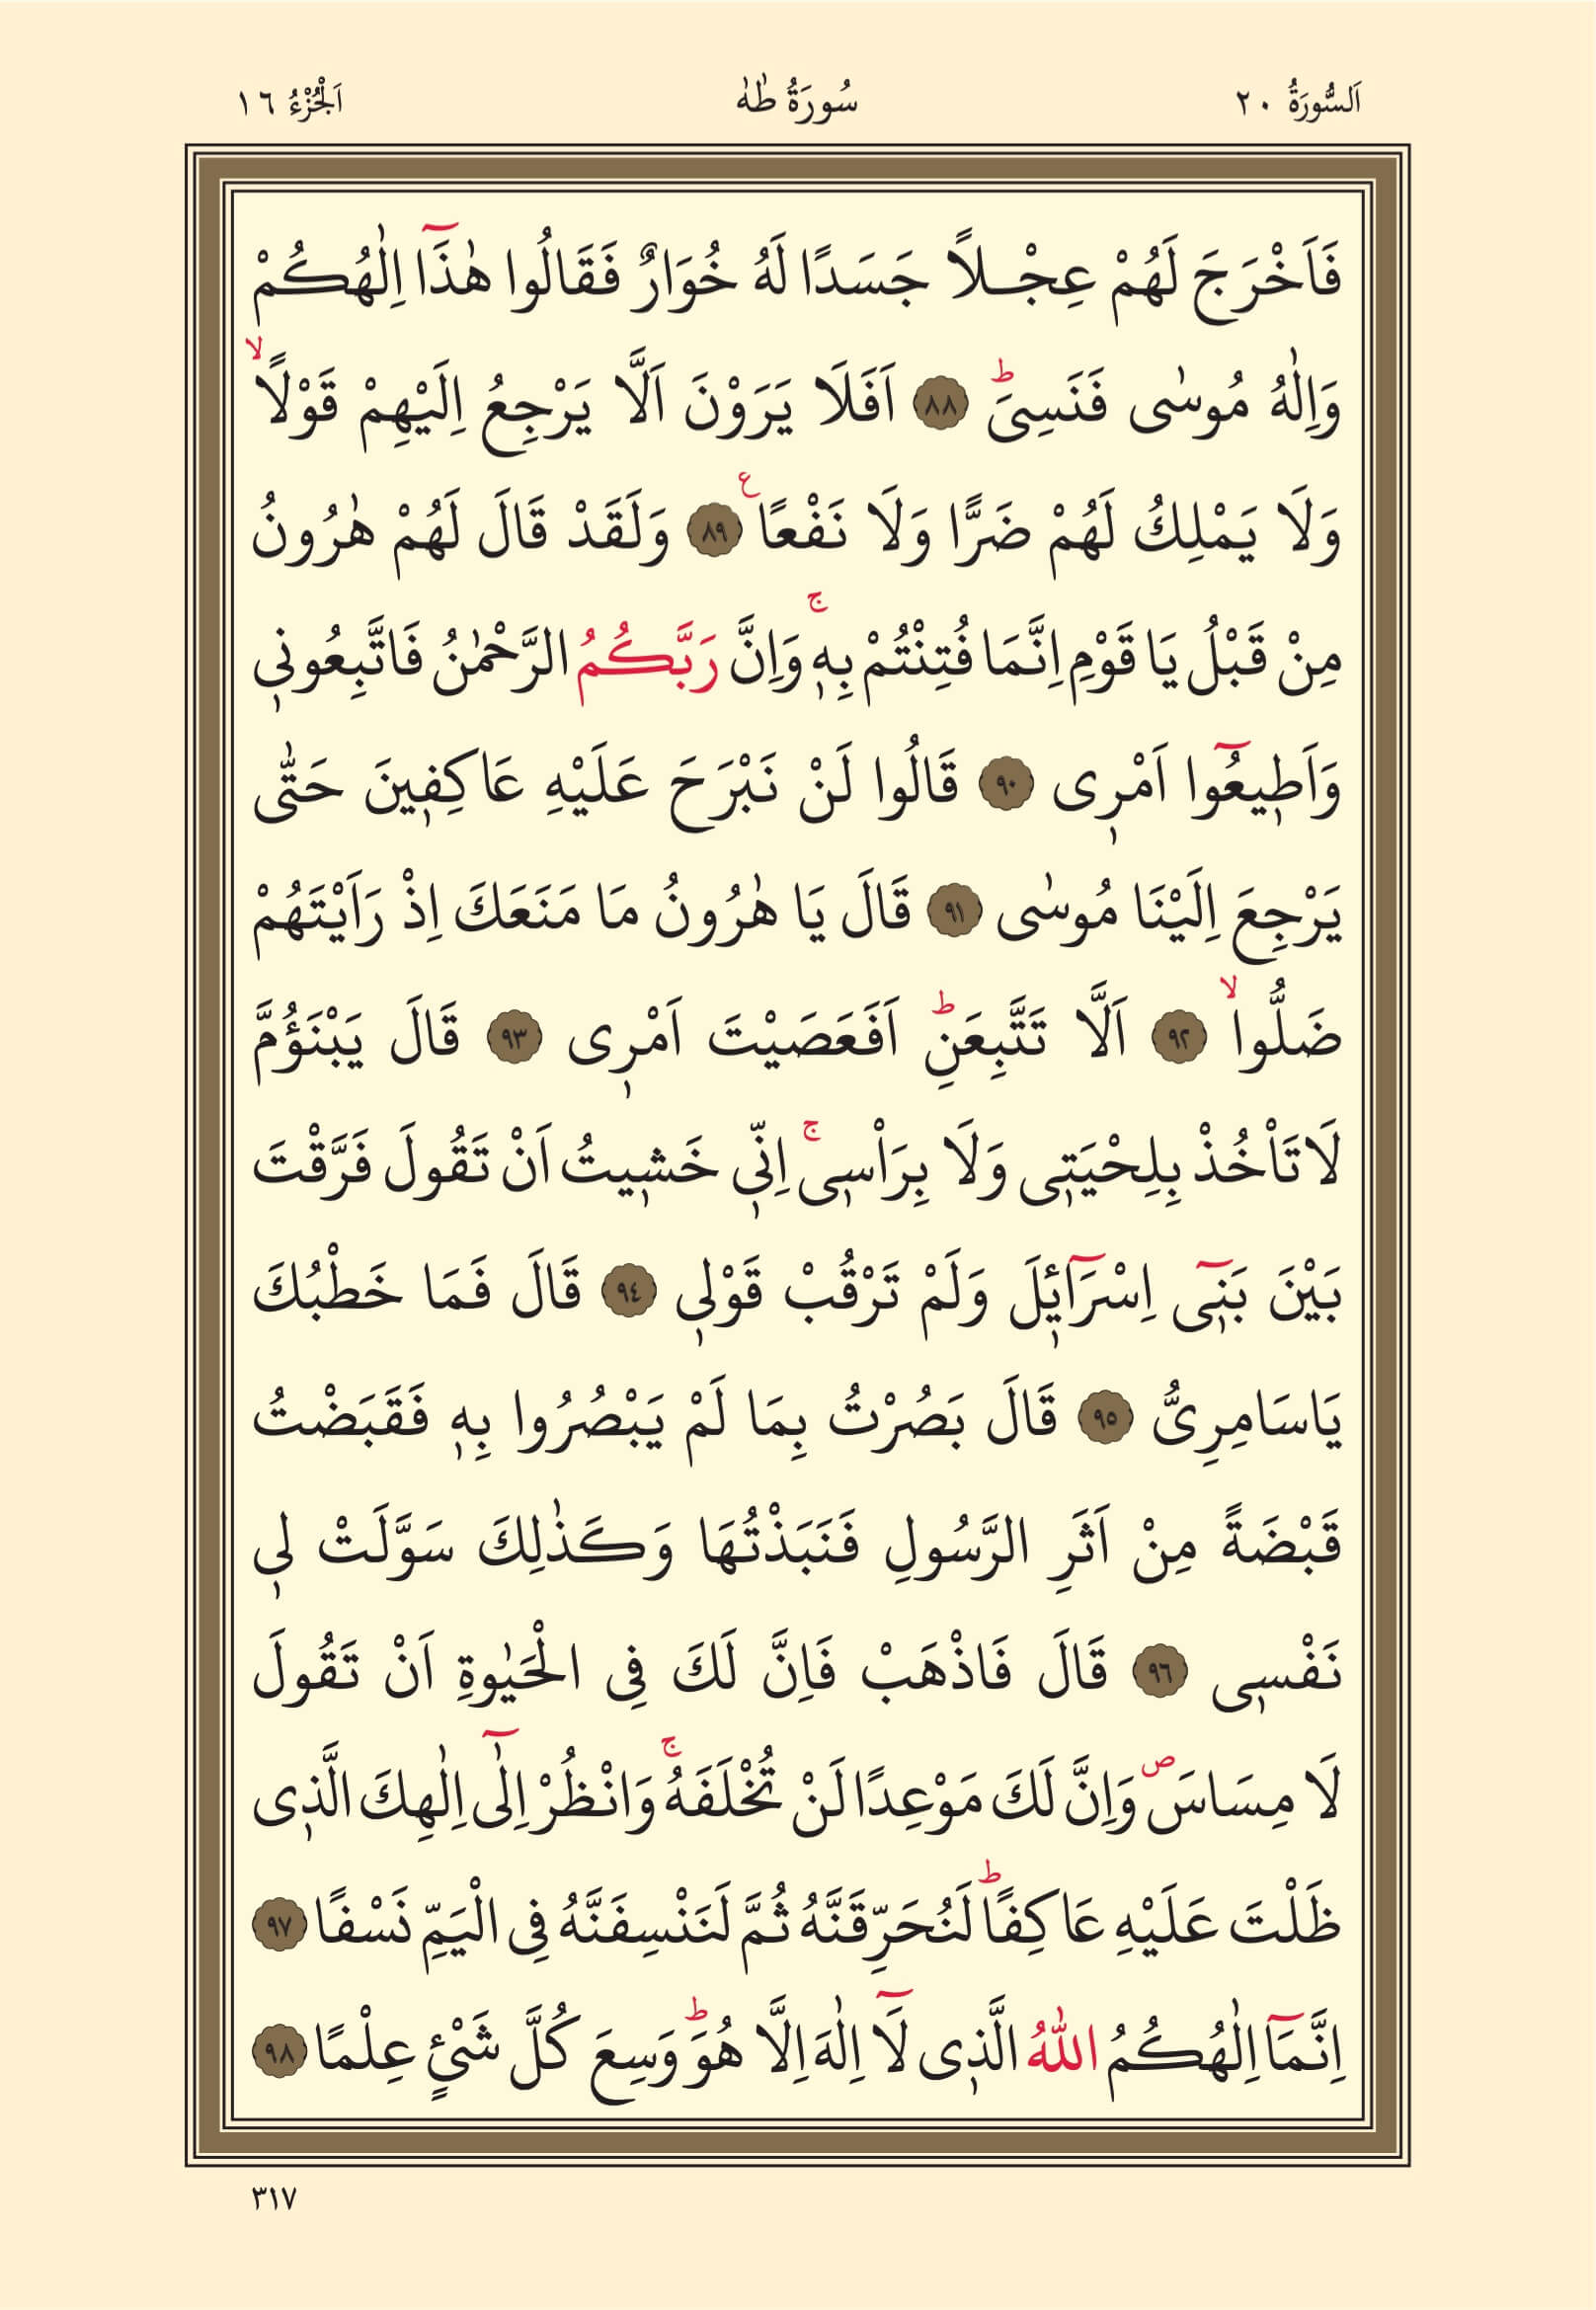 اَلسُّورَةُ ٢٠ سُورَةُ طٰهٰ اَلْجُزْءُ ١٦
فَاَخْرَجَ لَهُمْ عِجْلاً جَسَدًا لَهُ خُوَارٌ فَقَالُوا هٰذَٓا اِلٰهُكُمْ
وَاِلٰهُ مُوسٰى فَنَسِىَۜ ٨٨ اَفَلَا يَرَوْنَ اَلَّا يَرْجِعُ اِلَيْهِمْ قَوْلًاۙ
وَلَا يَمْلِكُ لَهُمْ ضَرًّا وَلَا نَفْعًا ع ٨٩ وَلَقَدْ قَالَ لَهُمْ هٰرُونُ
مِنْ قَبْلُ يَا قَوْمِ اِنَّمَا فُتِنْتُمْ بِهٖۚ وَاِنَّ رَبَّكُمُ الرَّحْمٰنُ فَاتَّبِعُونٖى
وَاَطٖيعُٓوا اَمْرٖى ٩٠ قَالُوا لَنْ نَبْرَحَ عَلَيْهِ عَاكِفٖينَ حَتّٰى
يَرْجِعَ اِلَيْنَا مُوسٰى ٩١ قَالَ يَا هٰرُونُ مَا مَنَعَكَ اِذْ رَاَيْتَهُمْ
ضَلُّواۙ ٩٢ اَلَّا تَتَّبِعَنِۜ اَفَعَصَيْتَ اَمْرٖى ٩٣ قَالَ يَبْنَؤُمَّ
لَا تَاْخُذْ بِلِحْيَتٖى وَلَا بِرَاْسٖىۚ اِنّٖى خَشٖيتُ اَنْ تَقُولَ فَرَّقْتَ
بَيْنَ بَنٖٓى اِسْرَٓائٖلَ وَلَمْ تَرْقُبْ قَوْلٖى ٩٤ قَالَ فَمَا خَطْبُكَ
يَاسَامِرِىُّ ٩٥ قَالَ بَصُرْتُ بِمَا لَمْ يَبْصُرُوا بِهٖ فَقَبَضْتُ
قَبْضَةً مِنْ اَثَرِ الرَّسُولِ فَنَبَذْتُهَا وَكَذٰلِكَ سَوَّلَتْ لٖى
نَفْسٖى ٩٦ قَالَ فَاذْهَبْ فَاِنَّ لَكَ فِى الْحَيٰوةِ اَنْ تَقُولَ
لَا مِسَاسَ ص وَاِنَّ لَكَ مَوْعِدًا لَنْ تُخْلَفَهُۚ وَانْظُرْ اِلٰٓى اِلٰهِكَ الَّذٖى
ظَلْتَ عَلَيْهِ عَاكِفًاۜ لَنُحَرِّقَنَّهُ ثُمَّ لَنَنْسِفَنَّهُ فِى الْيَمِّ نَسْفًا ٩٧
اِنَّمَٓا اِلٰهُكُمُ اللّٰهُ الَّذٖى لَٓا اِلٰهَ اِلَّا هُوَۜ وَسِعَ كُلَّ شَىْءٍ عِلْمًا ٩٨
٣١٧